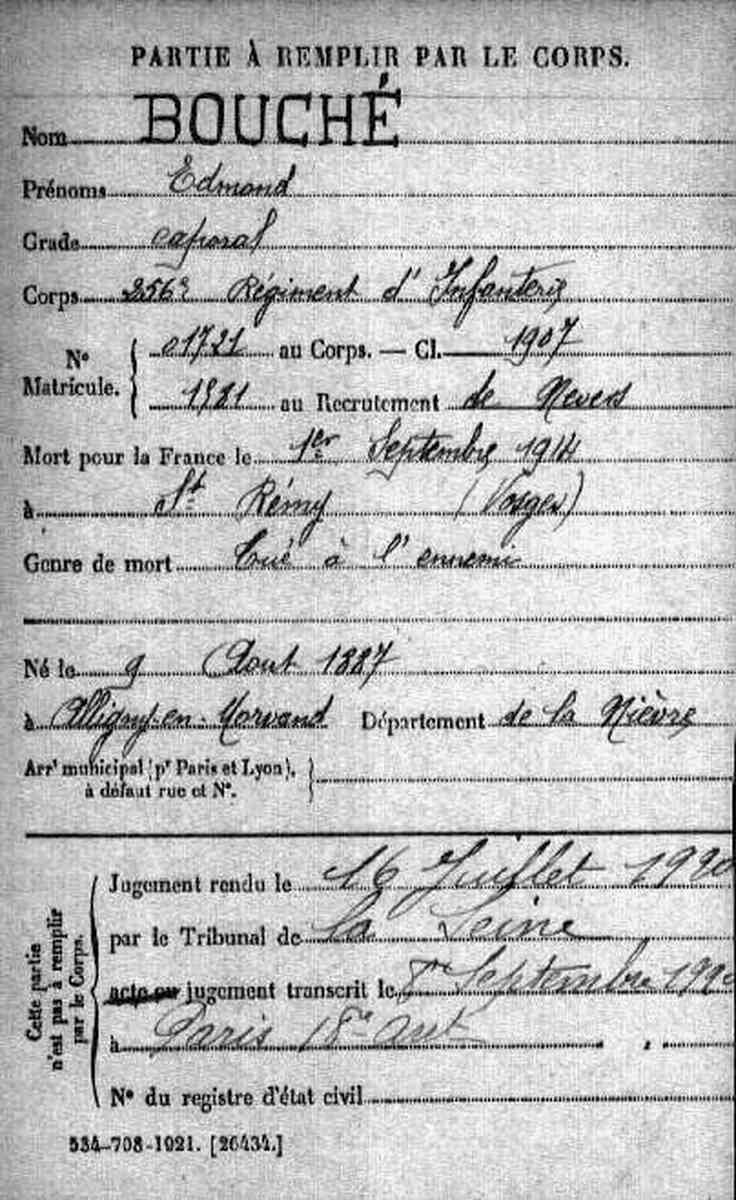 PARTIE À REMPLIR PAR LE CORPS.
Nom BOUCHÉ
Prénoms Edmond
Grade caporal
Corps 256e Régiment d'Infanterie
N° Matricule. 01721 au Corps. — Cl. 1907
1981 au Recrutement de Nevers
Mort pour la France le 1er Septembre 1914
à St Rémy (Vosges)
Genre de mort Tué à l'ennemi
Né le 9 Aout 1887
à Alligny-en-Morvand Département de la Nièvre
Arrt municipal (pr Paris et Lyon),
à défaut rue et N°.
Cette partie n'est pas à remplir par le Corps.
Jugement rendu le 16 Juillet 1920
par le Tribunal de la Seine
acte ou jugement transcrit le Septembre
à Paris 18e arrt
N° du registre d'état civil
534-708-1921. [26434.]